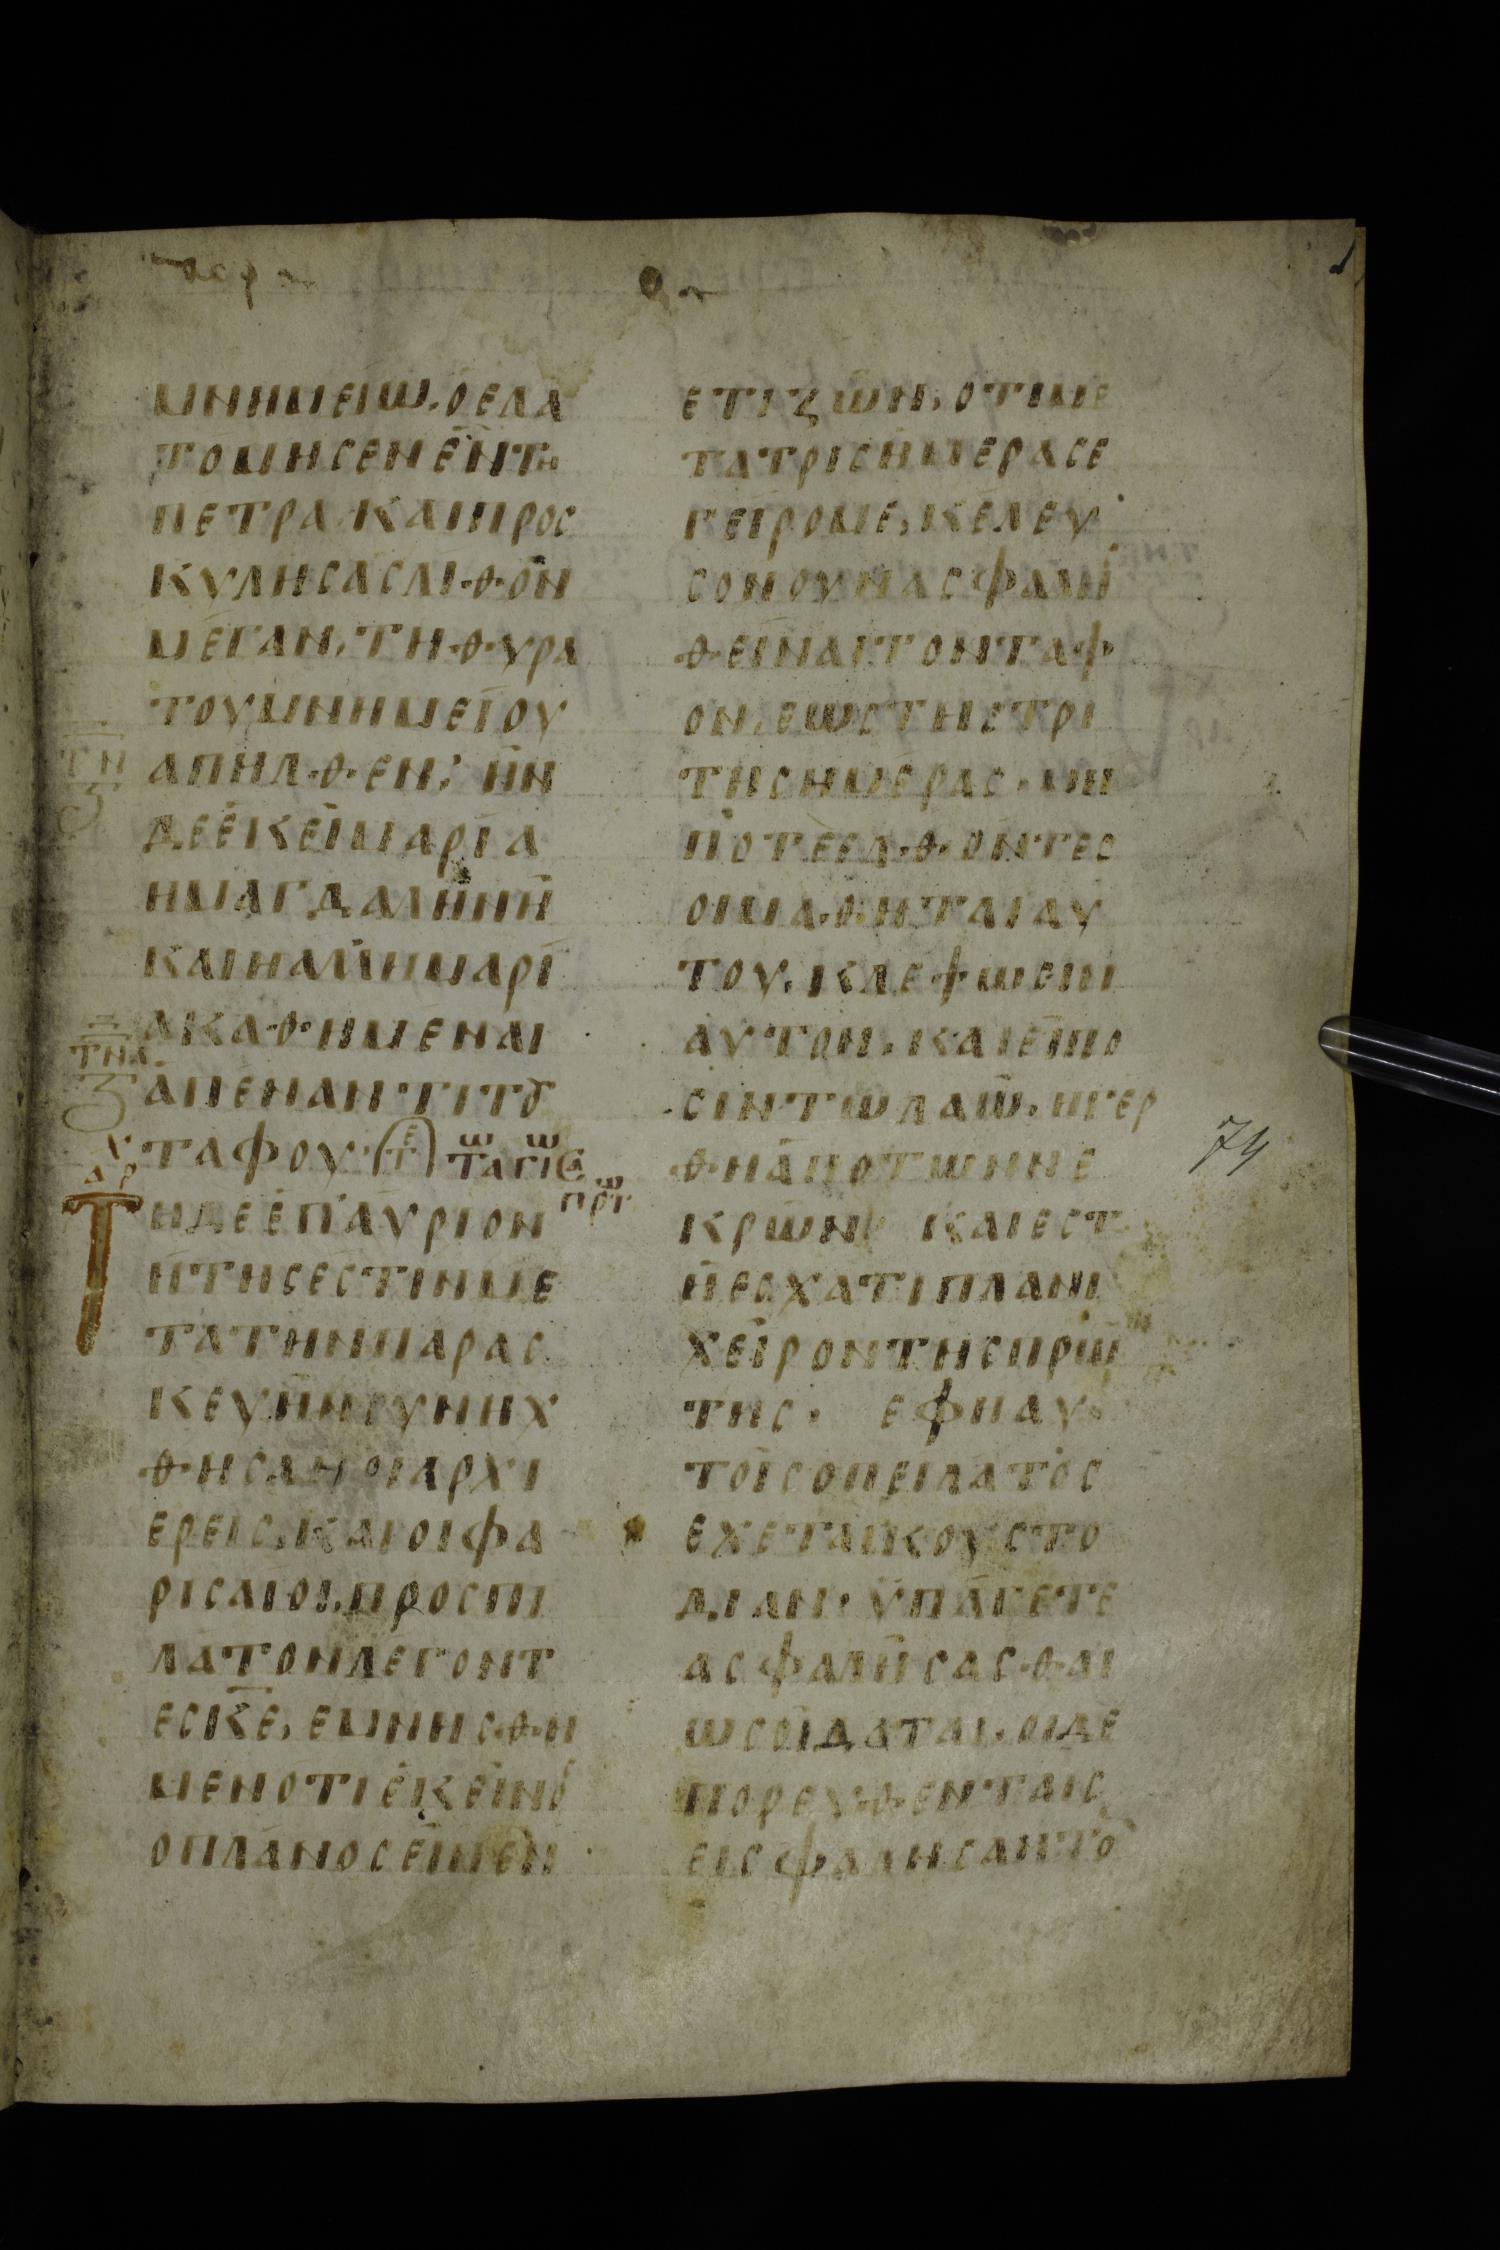 ΜΝΗΜΕΙΩ. Ο ΕΛΑ
ΤΟΜΗΣΕΝ ΕΝ ΤΗ
ΠΕΤΡΑ. ΚΑΙ ΠΡΟΣ
ΚΥΛΗΣΑΣ ΛΙΘΟΝ
ΜΕΓΑΝ, ΤΗ ΘΥΡΑ
ΤΟΥ ΜΝΗΜΕΙΟΥ
ΑΠΗΛΘΕΝ; ΗΝ
ΤΗ
ΔΕ ΕΚΕΙ ΜΑΡΙΑ
Η ΜΑΓΔΑΛΗΝΗ
ΚΑΙ Η ΑΛΛΗ ΜΑΡΙ
Α ΚΑΘΗΜΕΝΑΙ
ΤΝΑ
ΑΠΕΝΑΝΤΙ ΤȢ
ΤΑΦΟΥ· ΤΕ
ΤΩ ΑΓΙΩ Σα
ΠΡΩΤ
ΑΡΧ
ΤΗ ΔΕ ΕΠΑΥΡΙΟΝ
ΗΤΗΣ ΕΣΤΙΝ ΜΕ
ΤΑ ΤΗΝ ΠΑΡΑΣ
ΚΕΥΗΝ ΣΥΝΗΧ
ΘΗΣΑΝ ΟΙ ΑΡΧΙ
ΕΡΕΙΣ, ΚΑΙ ΟΙ ΦΑ
ΡΙΣΑΙΟΙ, ΠΡΟΣ ΠΙ
ΛΑΤΟΝ ΛΕΓΟΝΤ
ΕΣ ΚΕ, ΕΜΝΗΣΘΗ
ΜΕΝ ΟΤΙ ΕΚΕΙΝΟ
Ο ΠΛΑΝΟΣ ΕΙΠΕΝ
ΕΤΙ ΖΩΝ, ΟΤΙ ΜΕ
ΤΑ ΤΡΙΣ ΗΜΕΡΑΣ Ε
ΓΕΙΡΟΜΕ, ΚΕΛΕΥ
ΣΟΝ ΟΥΝ ΑΣΦΑΛΗ
ΘΕΙΝΑΙ ΤΟΝ ΤΑΦ
ΟΝ, ΕΩΣ ΤΗΣ ΤΡΙ
ΤΗΣ ΗΜΕΡΑΣ, ΜΗ
ΠΟΤΕ ΕΛΘΟΝΤΕΣ
ΟΙ ΜΑΘΗΤΑΙ ΑΥ
ΤΟΥ, ΚΛΕΨΩΣΙΝ
ΑΥΤΟΝ, ΚΑΙ ΕΙΠΟ
ΣΙΝ ΤΩ ΛΑΩ, ΗΓΕΡ
ΘΗ ΑΠΟ ΤΩΝ ΝΕ
ΚΡΩΝ ΚΑΙ ΕΣΤ
Η ΕΣΧΑΤΙ ΠΛΑΝΙ
ΧΕΙΡΟΝ ΤΗΣ ΠΡΩ
ΤΗΣ· ΕΦΗ ΑΥ
ΤΟΙΣ Ο ΠΕΙΛΑΤΟΣ
ΕΧΕΤΑΙ ΚΟΥΣΤΟ
ΔΙΑΝ· ΥΠΑΓΕΤΕ
ΑΣΦΑΛΗΣΑΣΘΑΙ
ΩΣ ΟΙΔΑΤΑΙ, ΟΙ ΔΕ
ΠΟΡΕΥΘΕΝΤΑΙΣ
ΕΙΣΦΑΛΗΣΑΝΤΟ
74